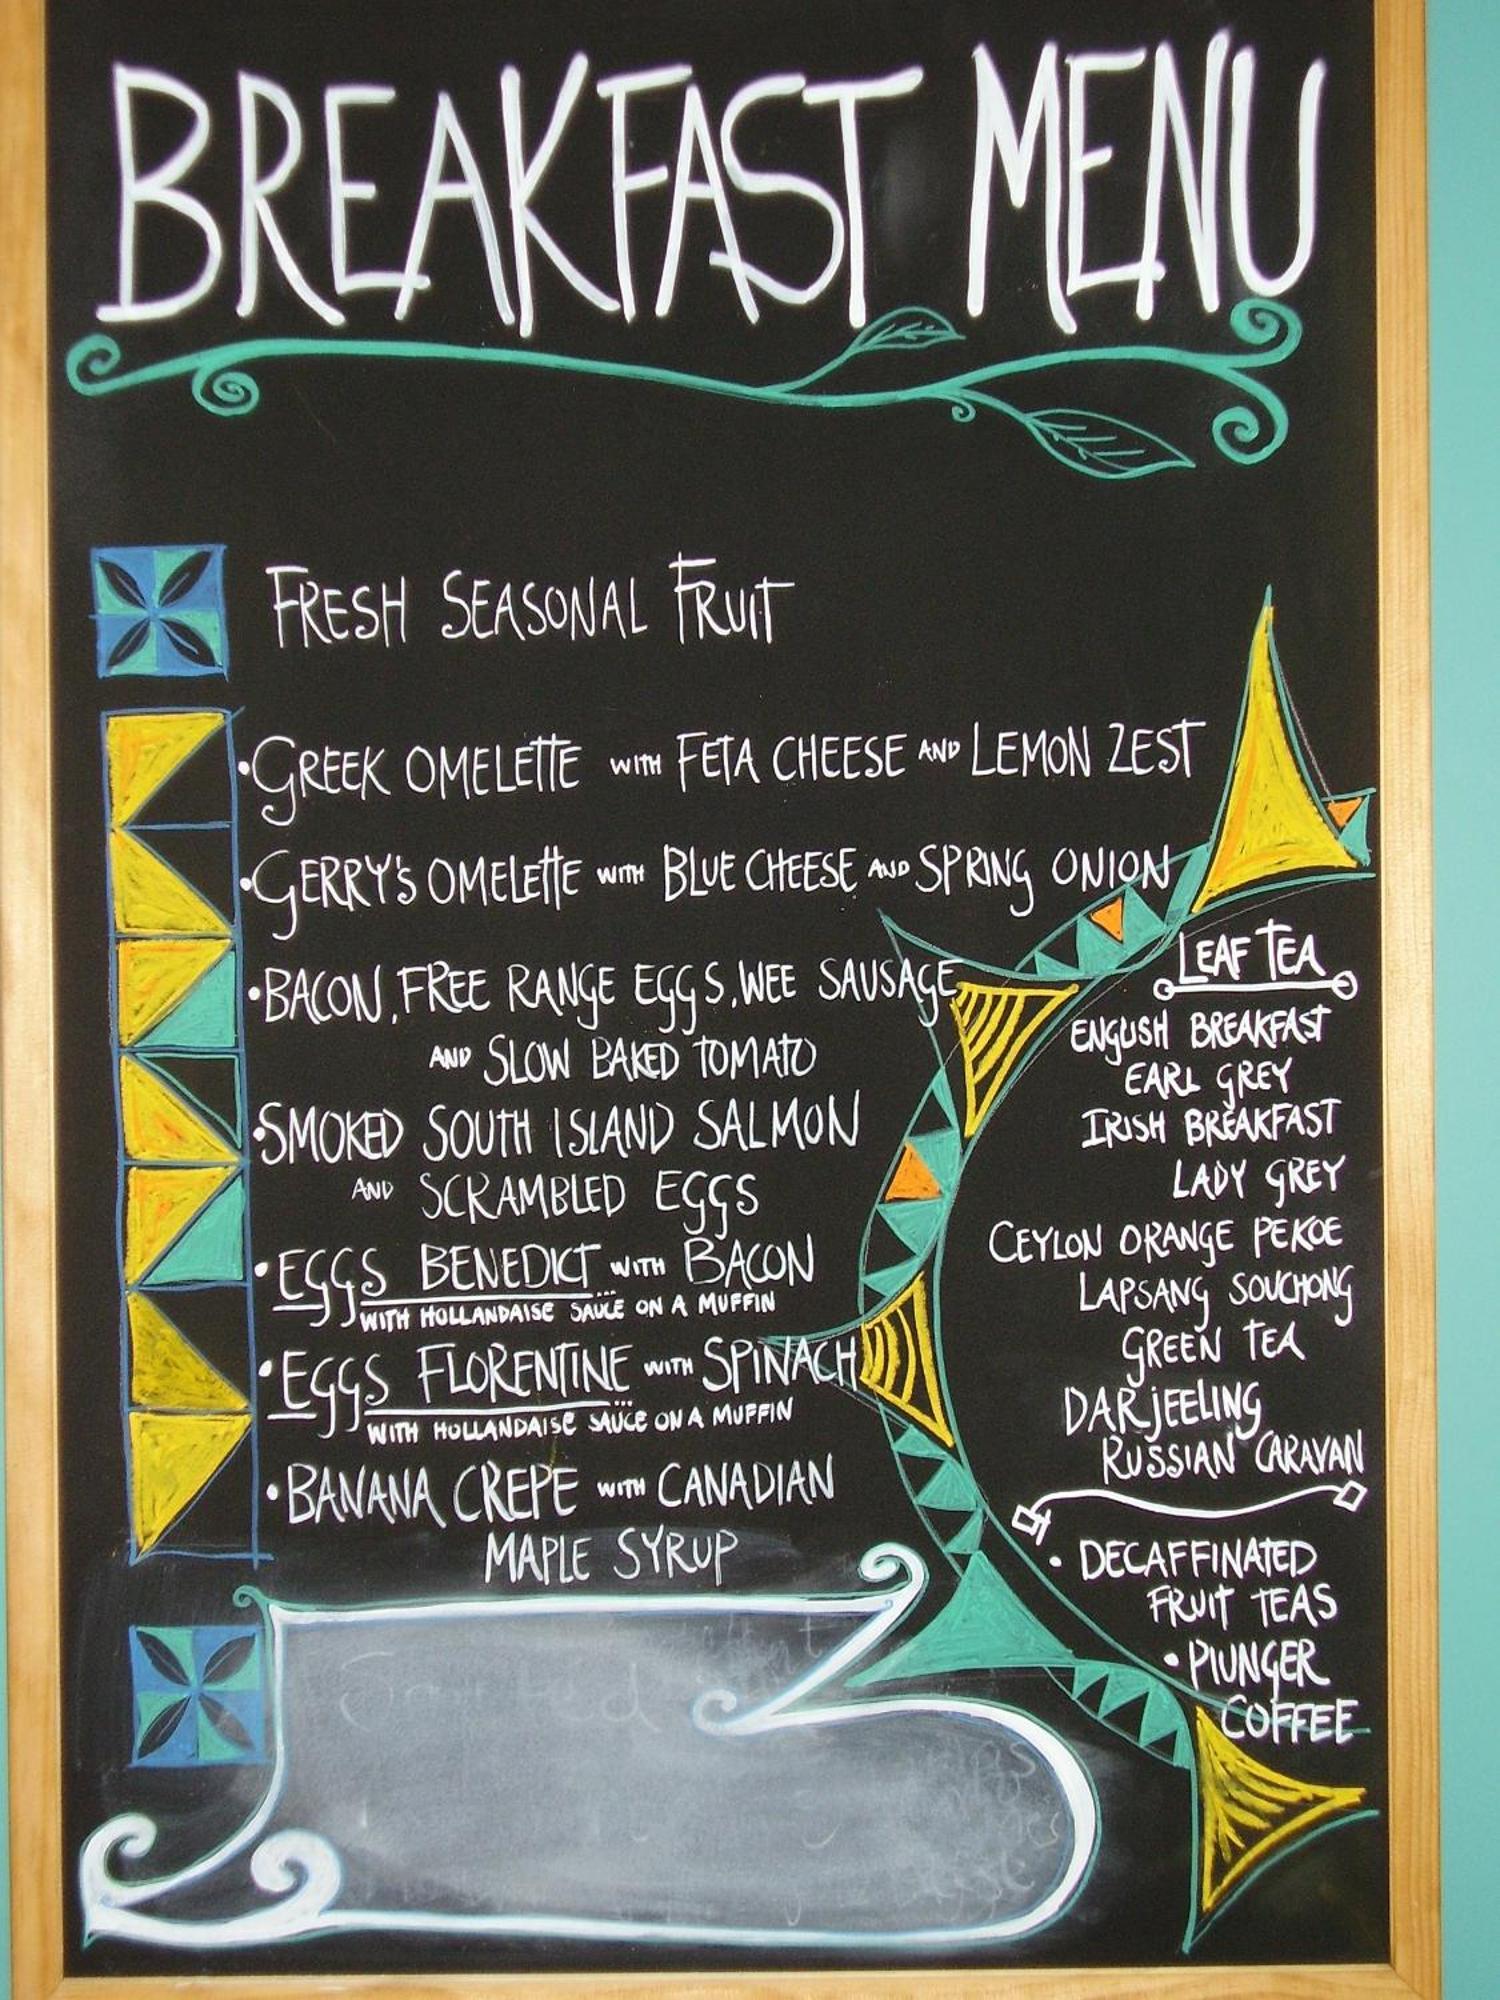 BREAKFAST MENU
FRESH SEASONAL FRUIT
• GREEK OMELETTE WITH FETA CHEESE AND LEMON ZEST
• GERRY'S OMELETTE WITH BLUE CHEESE AND SPRING ONION
• BACON, FREE RANGE EGGS, WEE SAUSAGE
AND SLOW BAKED TOMATO
• SMOKED SOUTH ISLAND SALMON
AND SCRAMBLED EGGS
• EGGS BENEDICT WITH BACON
WITH HOLLANDAISE SAUCE ON A MUFFIN
• EGGS FLORENTINE WITH SPINACH
WITH HOLLANDAISE SAUCE ON A MUFFIN
• BANANA CREPE WITH CANADIAN
MAPLE SYRUP
LEAF TEA
ENGLISH BREAKFAST
EARL GREY
IRISH BREAKFAST
LADY GREY
CEYLON ORANGE PEKOE
LAPSANG SOUCHONG
GREEN TEA
DARJEELING
RUSSIAN CARAVAN
• DECAFFINATED
FRUIT TEAS
• PLUNGER
COFFEE